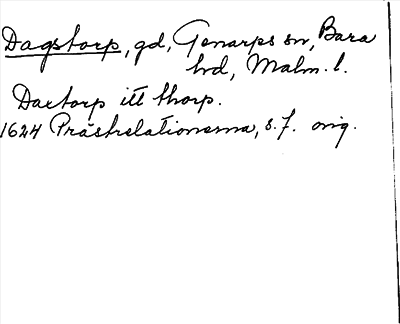 Dagstorp, gd, Genarps sn, Bara
hd, Malm. l.
Daetorp itt thorp.
1624 Prästrelationerna, s. 7. orig.